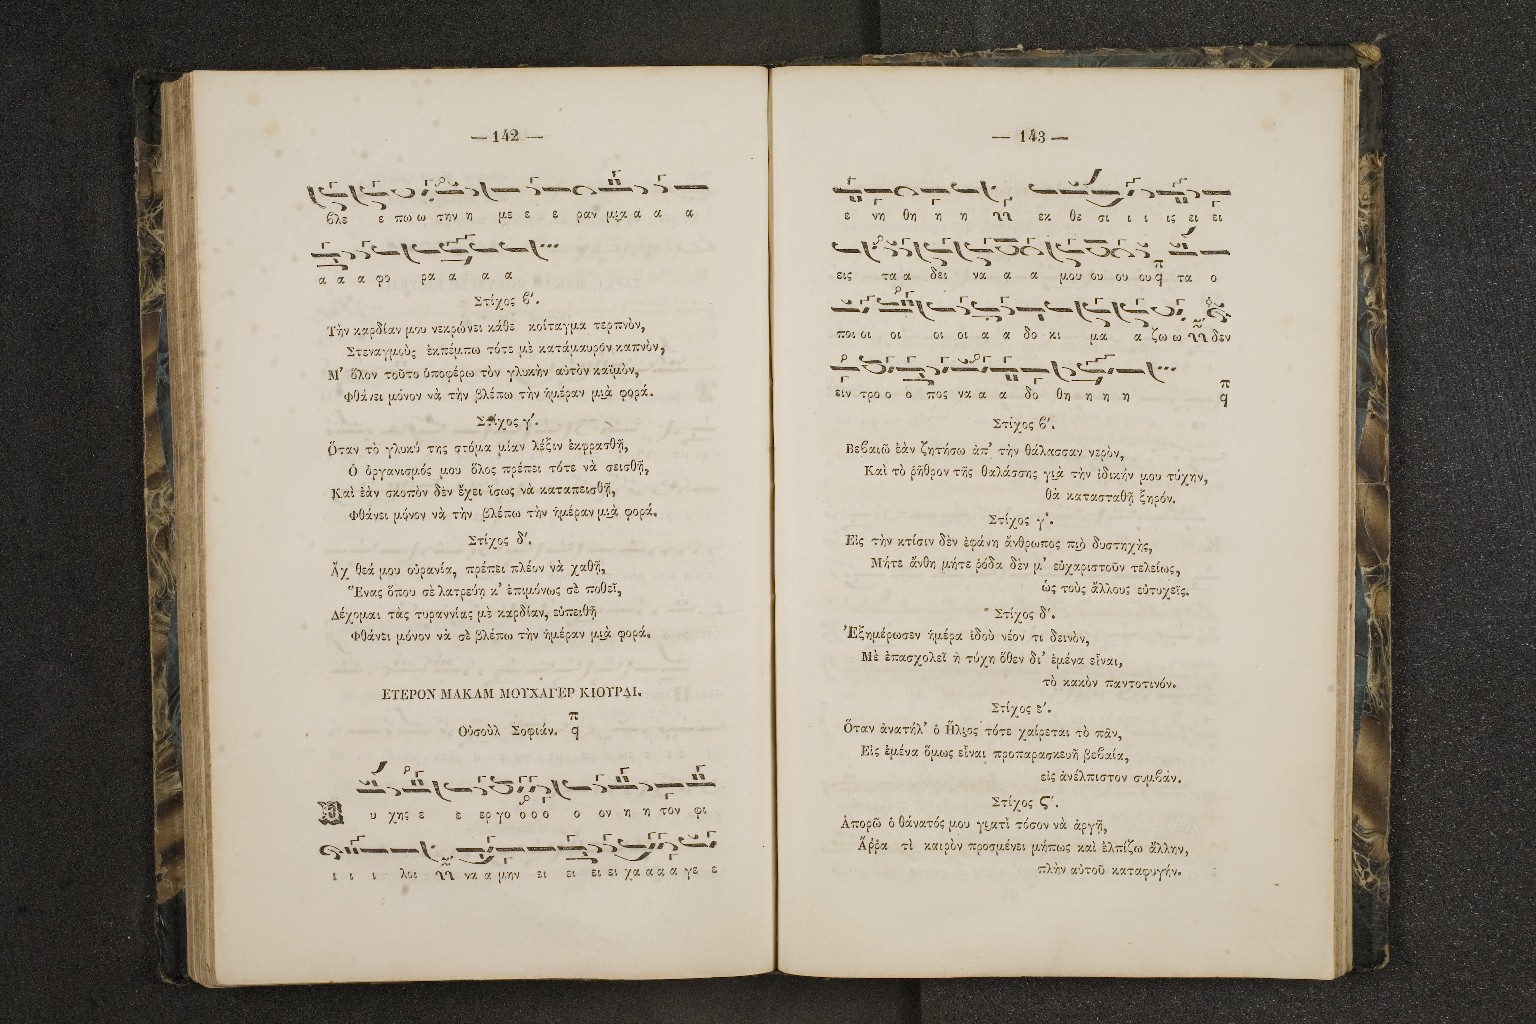 — 142 —
βλε ε πω ω την η με ε ε ραν μια α α α
α α α φο ρα α α α
Στίχος β'.
Τὴν καρδίαν μου νεκρώνει κάθε κοίταγμα τερπνὸν,
Στεναγμοὺς ἐκπέμπω τότε μὲ κατάμαυρον καπνὸν,
Μ' ὅλον τοῦτο ὑποφέρω τὸν γλυκὴν αὐτὸν καϊμὸν,
Φθάνει μόνον νὰ τὴν βλέπω τὴν ἡμέραν μιὰ φορά.
Στίχος γ'.
Ὅταν τὸ γλυκύ της στόμα μίαν λέξιν ἐκφρασθῇ,
Ὁ ὀργανισμός μου ὅλος πρέπει τότε νὰ σεισθῇ,
Καὶ ἐὰν σκοπὸν δὲν ἔχει ἴσως νὰ καταπεισθῇ,
Φθάνει μόνον νὰ τὴν βλέπω τὴν ἡμέραν μιὰ φορά.
Στίχος δ'.
Ἂχ θεά μου οὐρανία, πρέπει πλέον νὰ χαθῇ,
Ἕνας ὅπου σὲ λατρεύη κ' ἐπιμόνως σὲ ποθεῖ,
Δέχομαι τὰς τυραννίας μὲ καρδίαν, εὐπειθῆ
Φθάνει μόνον νὰ σὲ βλέπω τὴν ἡμέραν μιὰ φορά.
ΕΤΕΡΟΝ ΜΑΚΑΜ ΜΟΥΧΑΓΕΡ ΚΙΟΥΡΔΙ.
Οὐσοὺλ Σοφιάν. π q
υ χης ε ε εργο ο ο ο ο ον η η τον φι
ι ι ι λοι να α μην ει ει ει ει χα α α α γε ε
— 143 —
ε νη θη η η εκ θε σι ι ι ις ει ει
εις τα α δει να α α μου ου ου ου π q τα ο
ποι οι οι οι οι α α δο κι μα α ζω ω δεν
ειν τρο ο ο πος να α α δο θη η η η π q
Στίχος β'.
Βεβαιῶ ἐὰν ζητήσω ἀπ' τὴν θάλασσαν νερὸν,
Καὶ τὸ ρῆθρον τῆς θαλάσσης γιὰ τὴν ἰδικήν μου τύχην,
θὰ κατασταθῇ ξηρόν.
Στίχος γ'.
Εἰς τὴν κτίσιν δὲν ἐφάνη ἄνθρωπος πιὸ δυστηχής,
Μήτε ἄνθη μήτε ῥόδα δὲν μ' εὐχαριστοῦν τελείως,
ὡς τοὺς ἄλλους εὐτυχεῖς.
Στίχος δ'.
Ἐξημέρωσεν ἡμέρα ἰδοὺ νέον τι δεινὸν,
Μὲ ἐπασχολεῖ ἡ τύχη ὅθεν δι' ἐμένα εἶναι,
τὸ κακὸν παντοτινόν.
Στίχος ε'.
Ὅταν ἀνατήλ' ὁ Ἥλιος τότε χαίρεται τὸ πᾶν,
Εἰς ἐμένα ὅμως εἶναι προπαρασκευὴ βεβαία,
εἰς ἀνέλπιστον συμβάν.
Στίχος Ϛ'.
Ἀπορῶ ὁ θάνατός μου γιατὶ τόσον νὰ ἀργῇ,
Ἄρρα τὶ καιρὸν προσμένει μήπως καὶ ἐλπίζω ἄλλην,
πλὴν αὐτοῦ καταφυγήν.